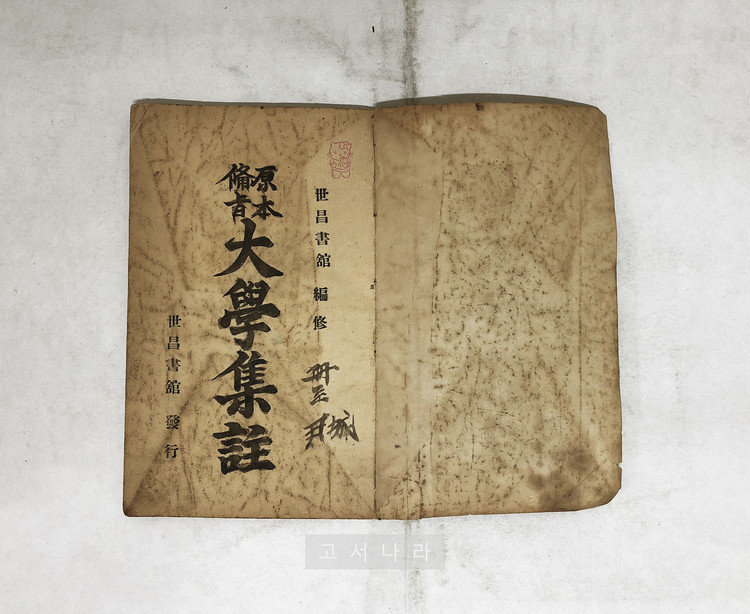 世昌書館 編修
原本
備旨
大學集註
世昌書館 發行
고서나라